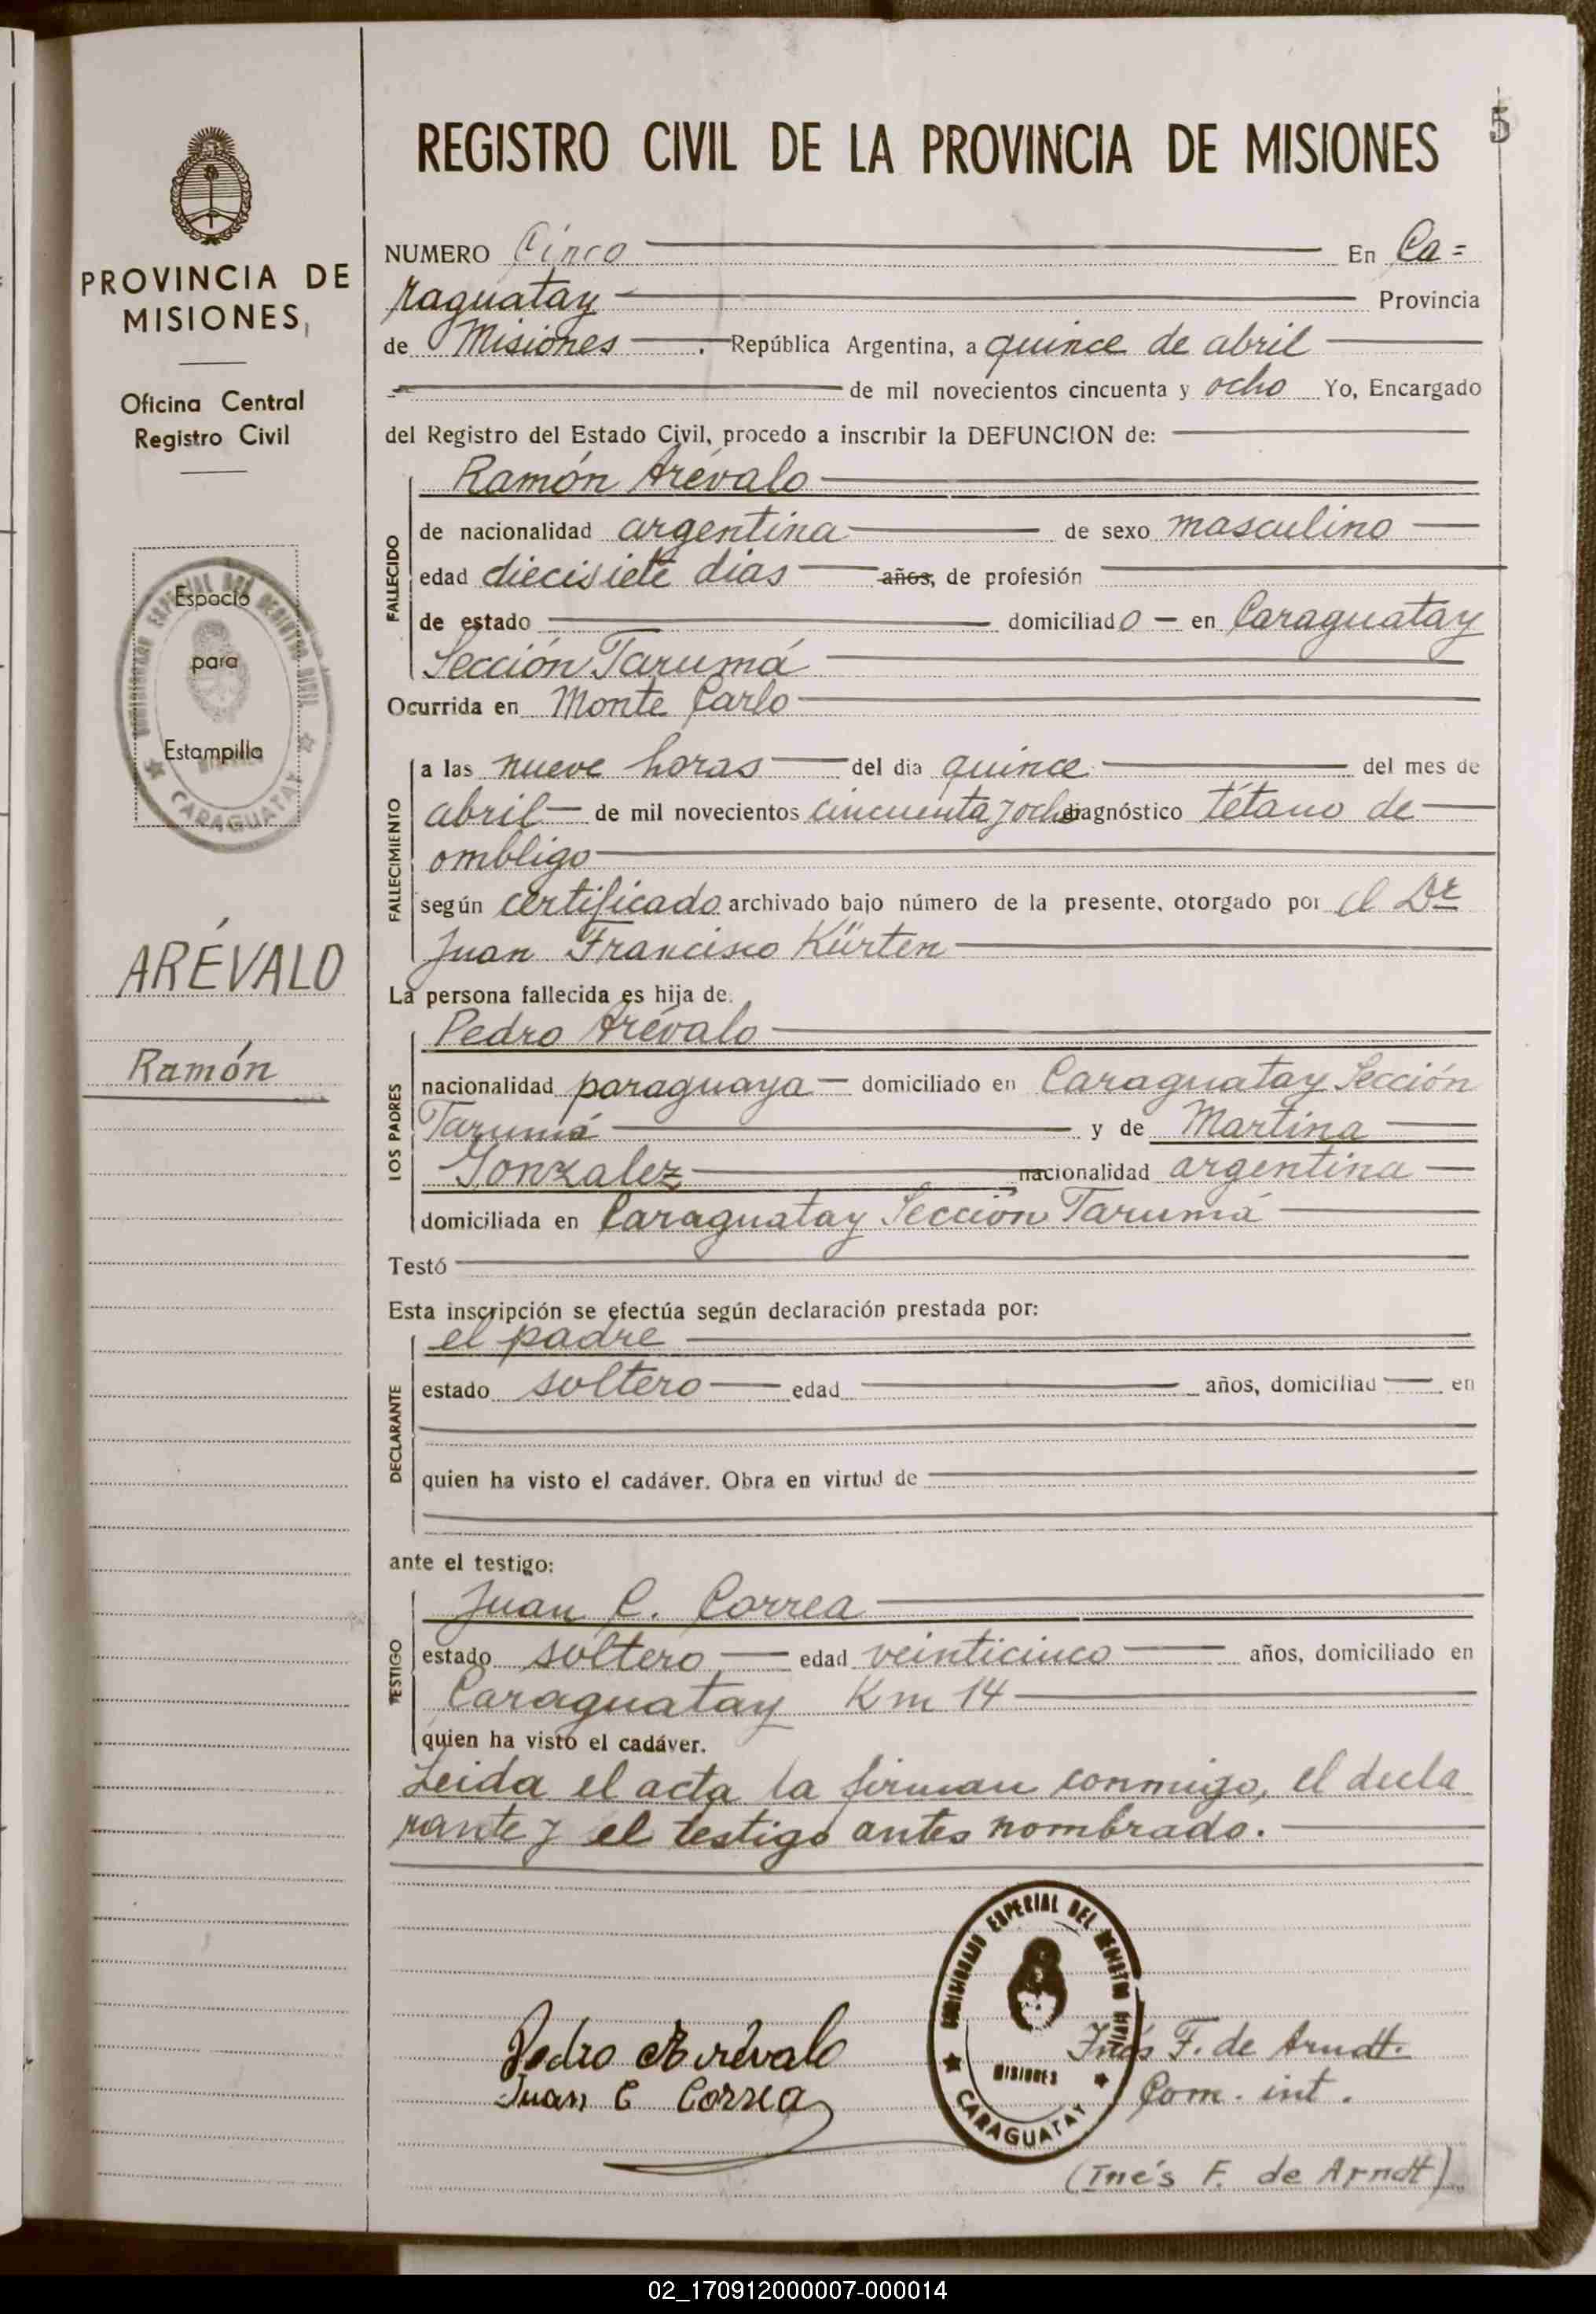 5
REGISTRO CIVIL DE LA PROVINCIA DE MISIONES
PROVINCIA DE
MISIONES,
Oficina Central
Registro Civil
Espacio
para
Estampilla
CARAGUATAY
ARÉVALO
Ramón
NUMERO Cinco En Ca=
raguatay Provincia
de Misiones. República Argentina, a quince de abril
de mil novecientos cincuenta y ocho Yo, Encargado
del Registro del Estado Civil, procedo a inscribir la DEFUNCION de:
FALLECIDO
Ramón Arévalo
de nacionalidad argentina de sexo masculino
edad diecisiete dias años, de profesión
de estado domiciliado en Caraguatay
Sección Tarumá
Ocurrida en Monte Carlo
FALLECIMIENTO
a las nueve horas del dia quince del mes de
abril de mil novecientos cincuenta y ocho diagnóstico tétano de
ombligo
según certificado archivado bajo número de la presente, otorgado por el Dr
Juan Francisco Kürten
La persona fallecida es hija de:
LOS PADRES
Pedro Arévalo
nacionalidad paraguaya domiciliado en Caraguatay Sección
Tarumá y de Martina
Gonzalez nacionalidad argentina
domiciliada en Caraguatay Sección Tarumá
Testó
Esta inscripción se efectúa según declaración prestada por:
DECLARANTE
el padre
estado soltero edad años, domiciliad en
quien ha visto el cadáver. Obra en virtud de
ante el testigo:
TESTIGO
Juan C. Correa
estado soltero edad veinticinco años, domiciliado en
Caraguatay Km 14
quien ha visto el cadáver.
Leida el acta la firman conmigo, el decla
rante y el testigo antes nombrado.
ESPECIAL DEL REGISTRO CIVIL
MISIONES
CARAGUATAY
Pedro Arévalo
Juan C Correa
Inés F. de Arndt.
Com. int.
(Inés F. de Arndt)
02_170912000007-000014